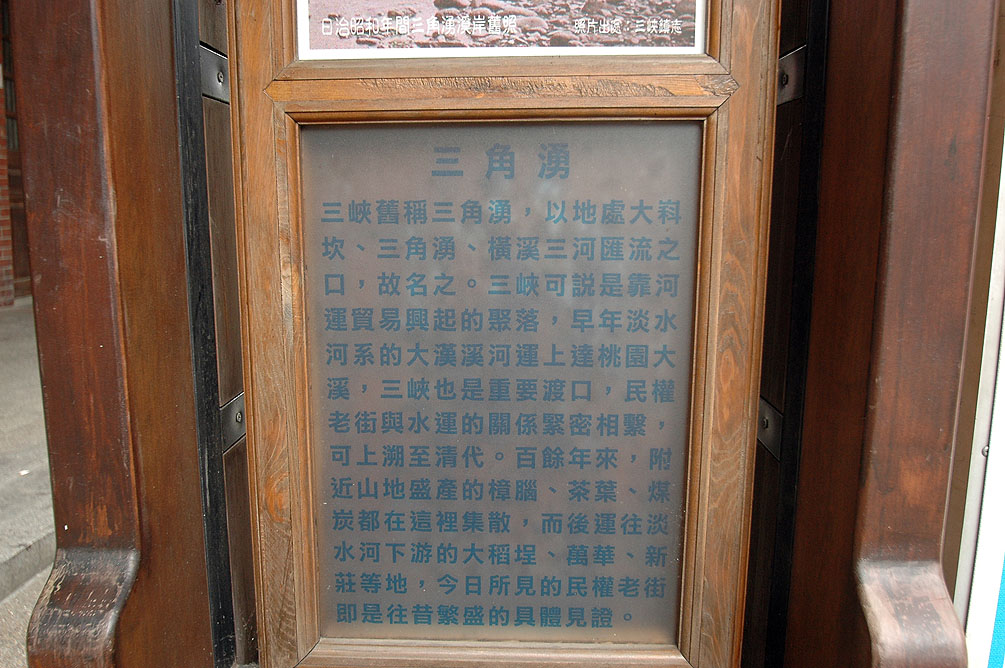 日治昭和年間三角湧溪岸舊照 照片出處：三峽鎮志
三角湧
三峽舊稱三角湧，以地處大嵙
坎、三角湧、橫溪三河匯流之
口，故名之。三峽可說是靠河
運貿易興起的聚落，早年淡水
河系的大漢溪河運上達桃園大
溪，三峽也是重要渡口，民權
老街與水運的關係緊密相繫，
可上溯至清代。百餘年來，附
近山地盛產的樟腦、茶葉、煤
炭都在這裡集散，而後運往淡
水河下游的大稻埕、萬華、新
莊等地，今日所見的民權老街
即是往昔繁盛的具體見證。